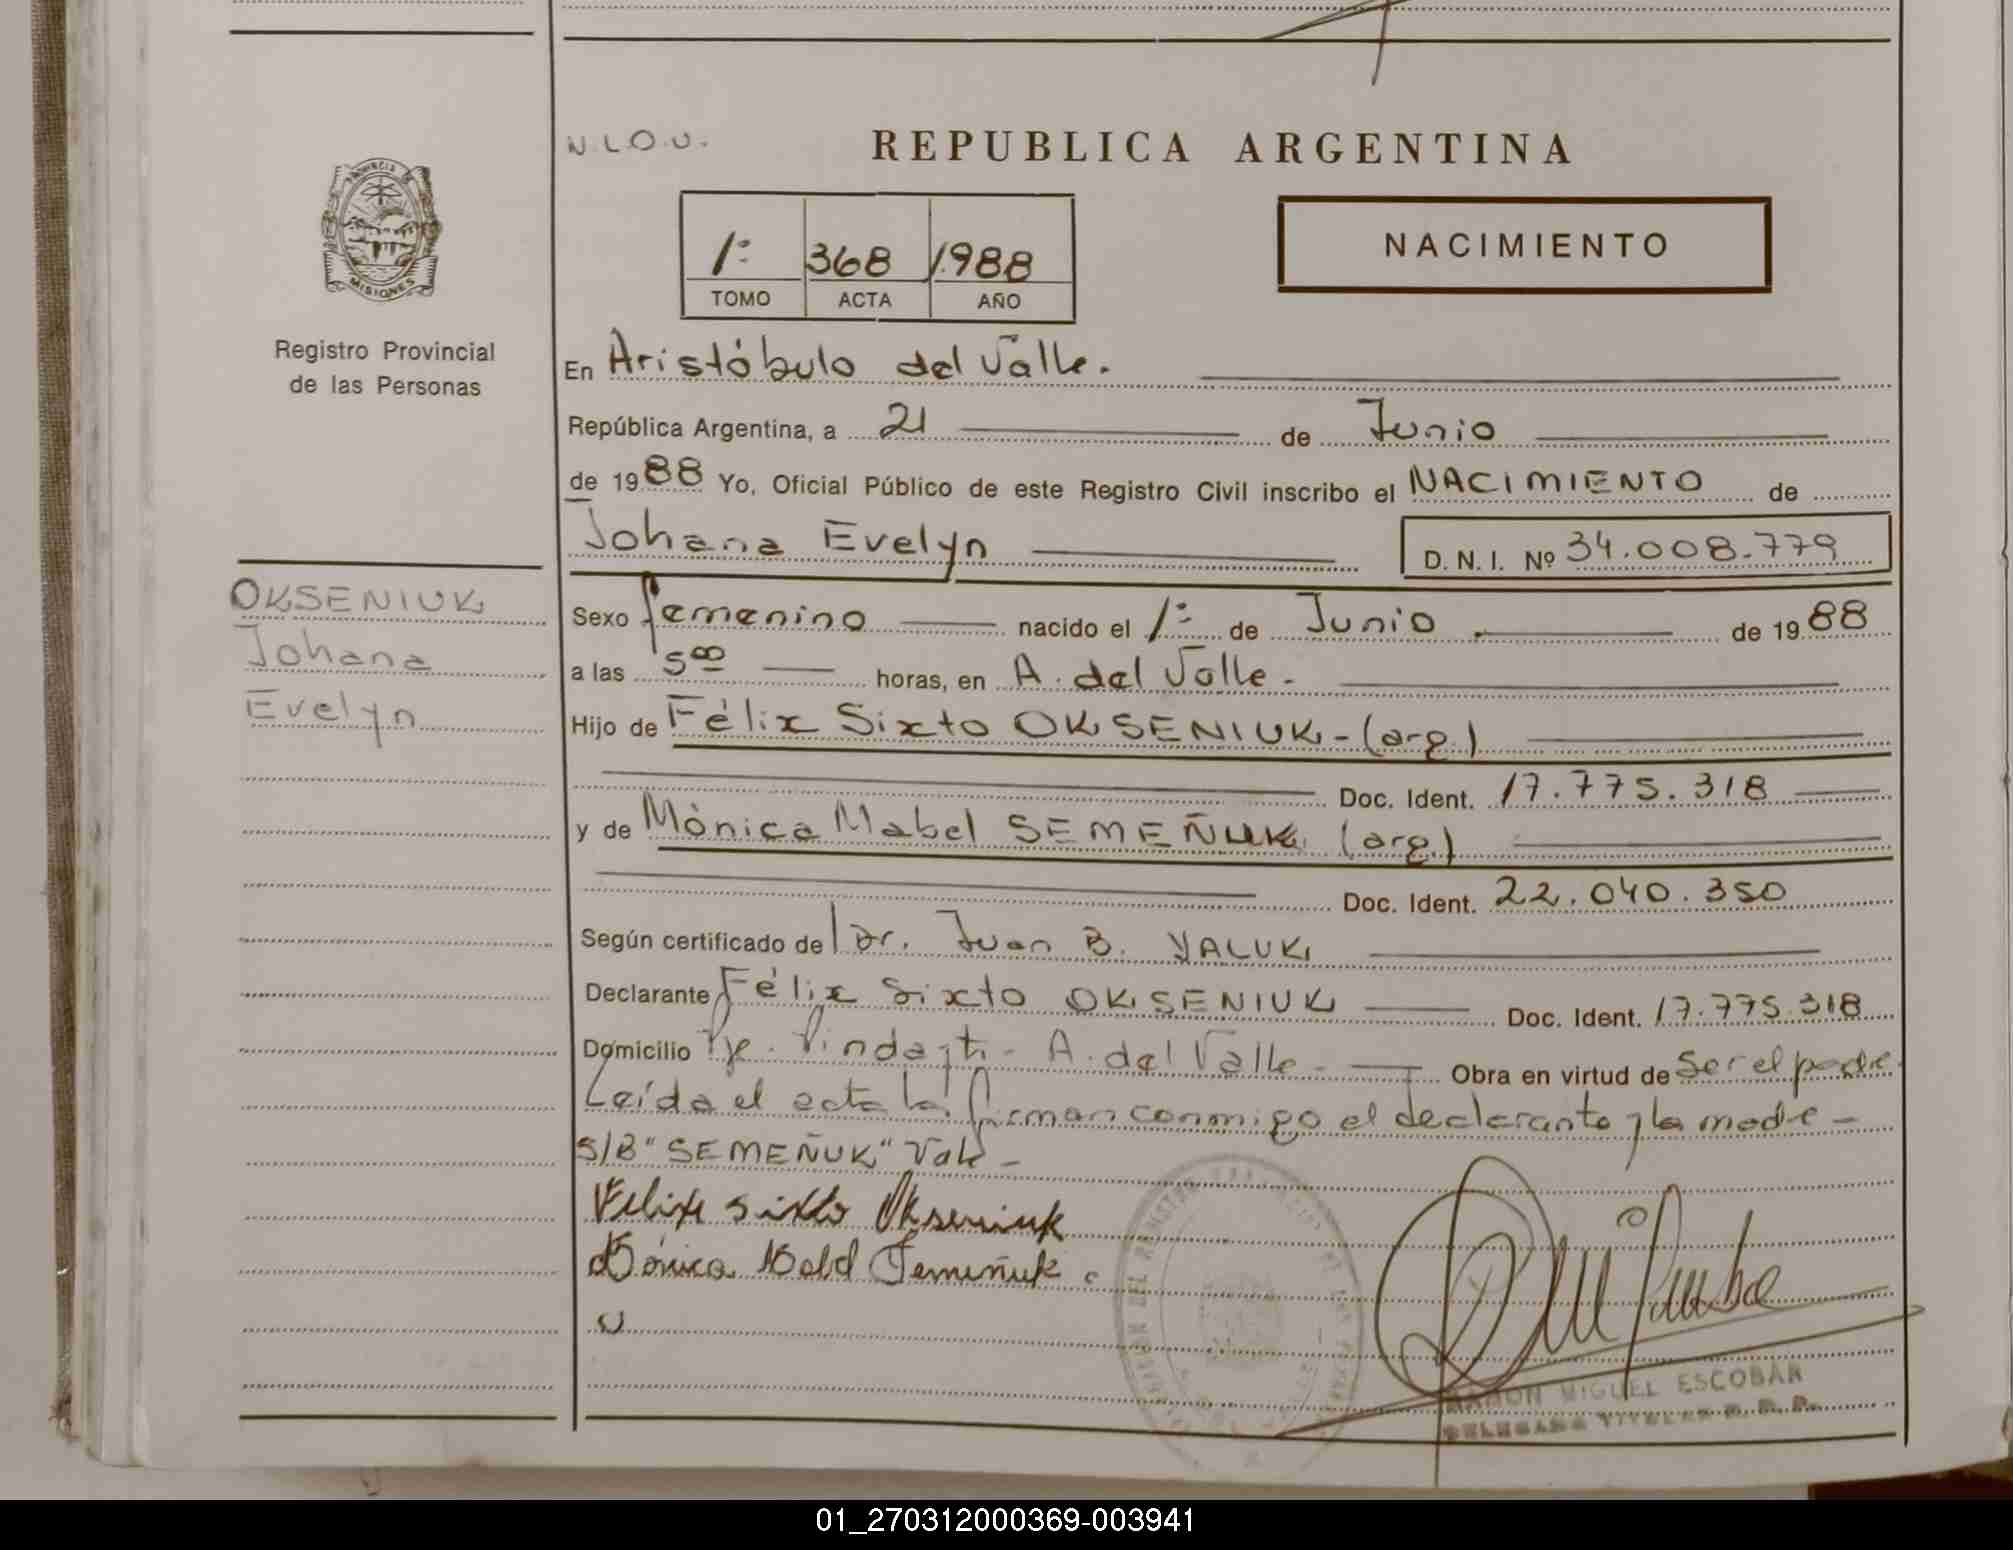 N.L.O.U.
REPUBLICA ARGENTINA
PROVINCIA DE
MISIONES
1º 368 1988
TOMO ACTA AÑO
NACIMIENTO
Registro Provincial
de las Personas
En Aristóbulo del Valle.
República Argentina, a 21 de Junio
de 1988 Yo, Oficial Público de este Registro Civil inscribo el NACIMIENTO de
Johana Evelyn D. N. I. Nº 34.008.779
OKSENIUK
Johana
Evelyn
Sexo femenino nacido el 1º de Junio de 1988
a las 5⁰⁰ horas, en A. del Valle.
Hijo de Félix Sixto OKSENIUK - (arg.)
Doc. Ident. 17.775.318
y de Mónica Mabel SEMEÑUK (arg.)
Doc. Ident. 22.040.350
Según certificado de Dr. Juan B. YALUK
Declarante Félix Sixto OKSENIUK Doc. Ident. 17.775.318
Domicilio A. del Valle - Obra en virtud de ser el padre
Leída el acta la firman conmigo el declarante y la madre -
S/B "SEMEÑUK" Vale -
Felix Sixto Okseniuk
Mónica Mabel Semeñuk
RAMON MIGUEL ESCOBAR
DELEGADO TITULAR R. P. P.
01_270312000369-003941